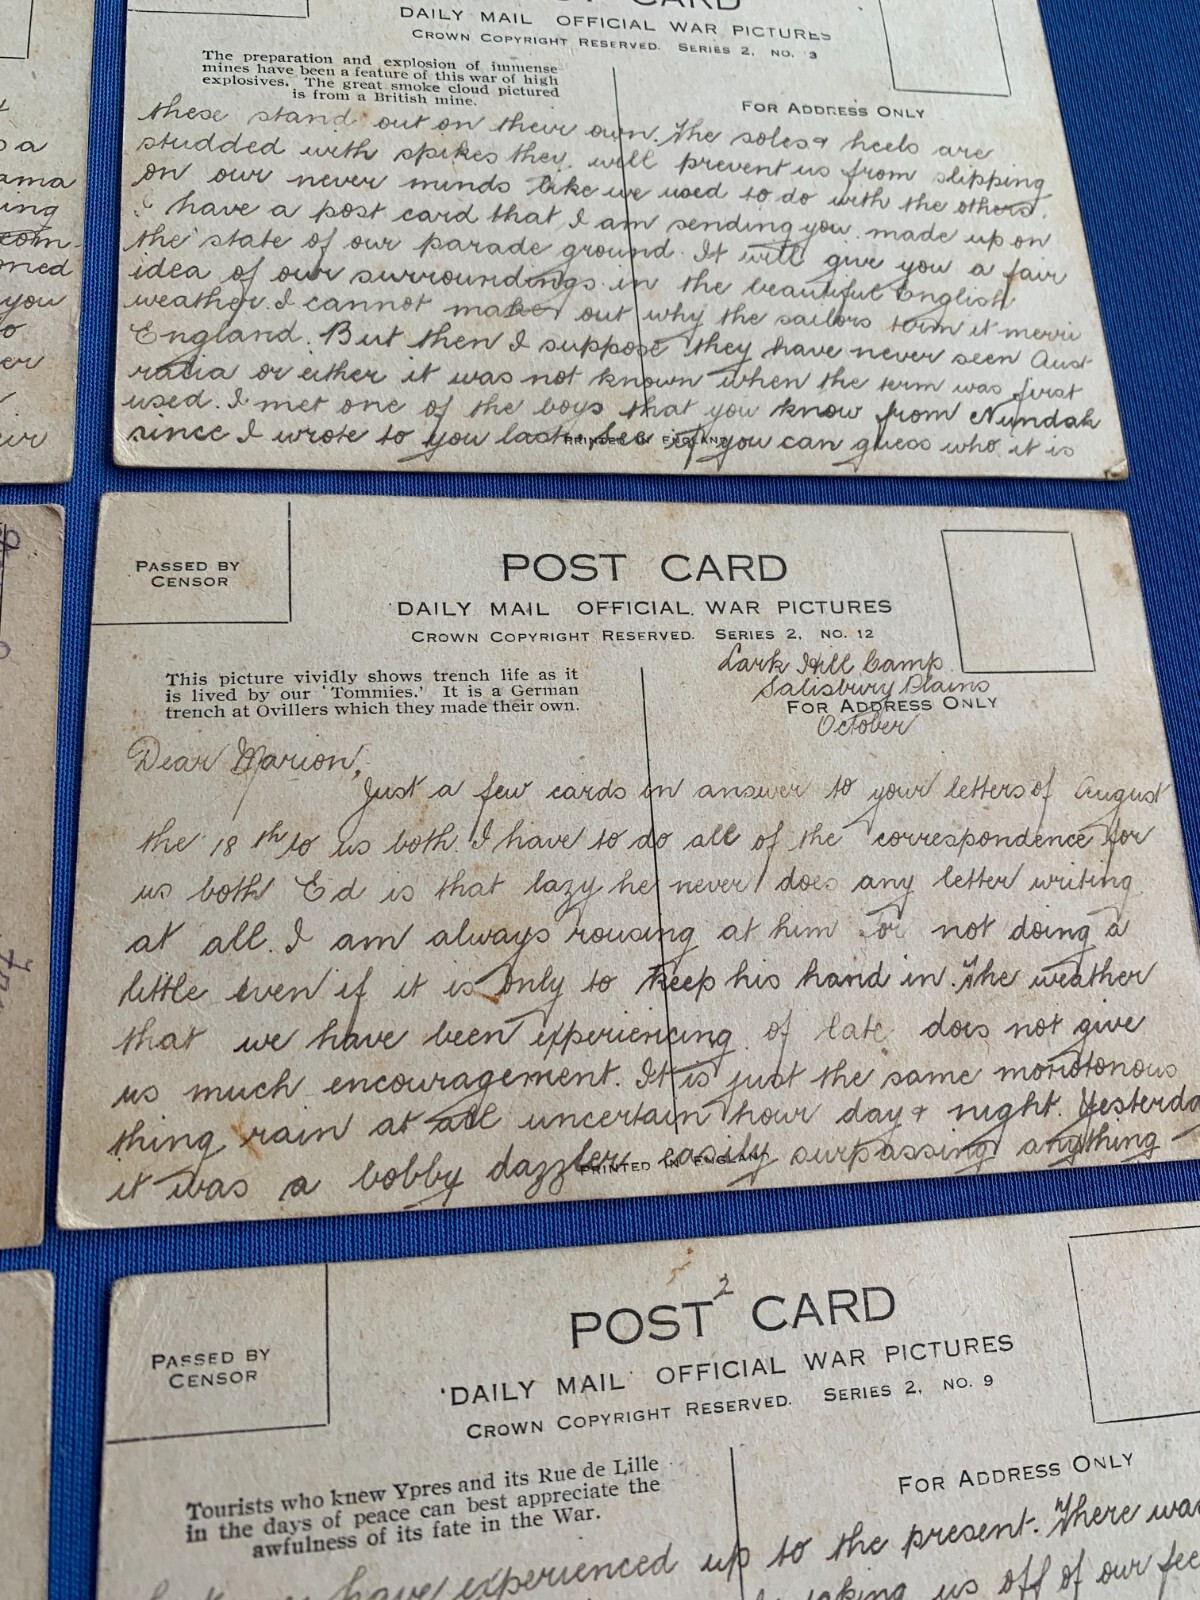 POST CARD
DAILY MAIL OFFICIAL WAR PICTURES
CROWN COPYRIGHT RESERVED. SERIES 2, NO. 3
The preparation and explosion of immense
mines have been a feature of this war of high
explosives. The great smoke cloud pictured
is from a British mine.
FOR ADDRESS ONLY
these stand out on their own. The soles & heels are
studded with spikes they will prevent us from slipping
on our never minds like we used to do with the others.
I have a post card that I am sending you made up on
the state of our parade ground. It will give you a fair
idea of our surroundings in the beautiful English
weather. I cannot make out why the sailors term it merri
England. But then I suppose they have never seen Aust
ralia or either it was not known when the term was first
used. I met one of the boys that you know from Nundah
since I wrote to you last. See if you can guess who it is
PRINTED IN ENGLAND
a
ama
ing
com-
oned
you
o
er
eir
PASSED BY
CENSOR
POST CARD
DAILY MAIL OFFICIAL WAR PICTURES
CROWN COPYRIGHT RESERVED. SERIES 2, NO. 12
This picture vividly shows trench life as it
is lived by our 'Tommies.' It is a German
trench at Ovillers which they made their own.
Lark Hill Camp
Salisbury Plains
FOR ADDRESS ONLY
October
Dear Marion,
Just a few cards in answer to your letters of August
the 18th to us both. I have to do all of the correspondence for
us both Ed is that lazy he never does any letter writing
at all. I am always rousing at him for not doing a
little even if it is only to keep his hand in. The weather
that we have been experiencing of late does not give
us much encouragement. It is just the same monotonous
thing rain at all uncertain hour day & night. Yesterda
it was a bobby dazzler easily surpassing anything
PRINTED IN ENGLAND
PASSED BY
CENSOR
2
POST CARD
'DAILY MAIL' OFFICIAL WAR PICTURES
CROWN COPYRIGHT RESERVED. SERIES 2, NO. 9
Tourists who knew Ypres and its Rue de Lille
in the days of peace can best appreciate the
awfulness of its fate in the War.
FOR ADDRESS ONLY
have experienced up to the present. There was
taking us off of our fee